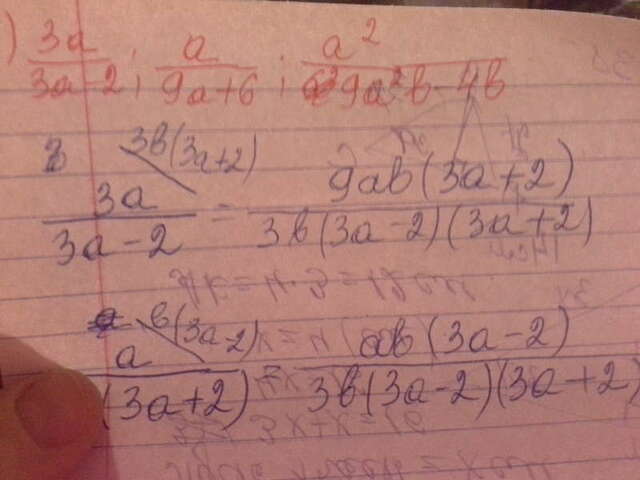 ) 3a/3a-2 ; a/9a+6 ; a²/9a²b-4b
3b(3a+2)
3a/3a-2 = 9ab(3a+2)/3b(3a-2)(3a+2)
b(3a-2)
a/(3a+2) = ab(3a-2)/3b(3a-2)(3a+2)